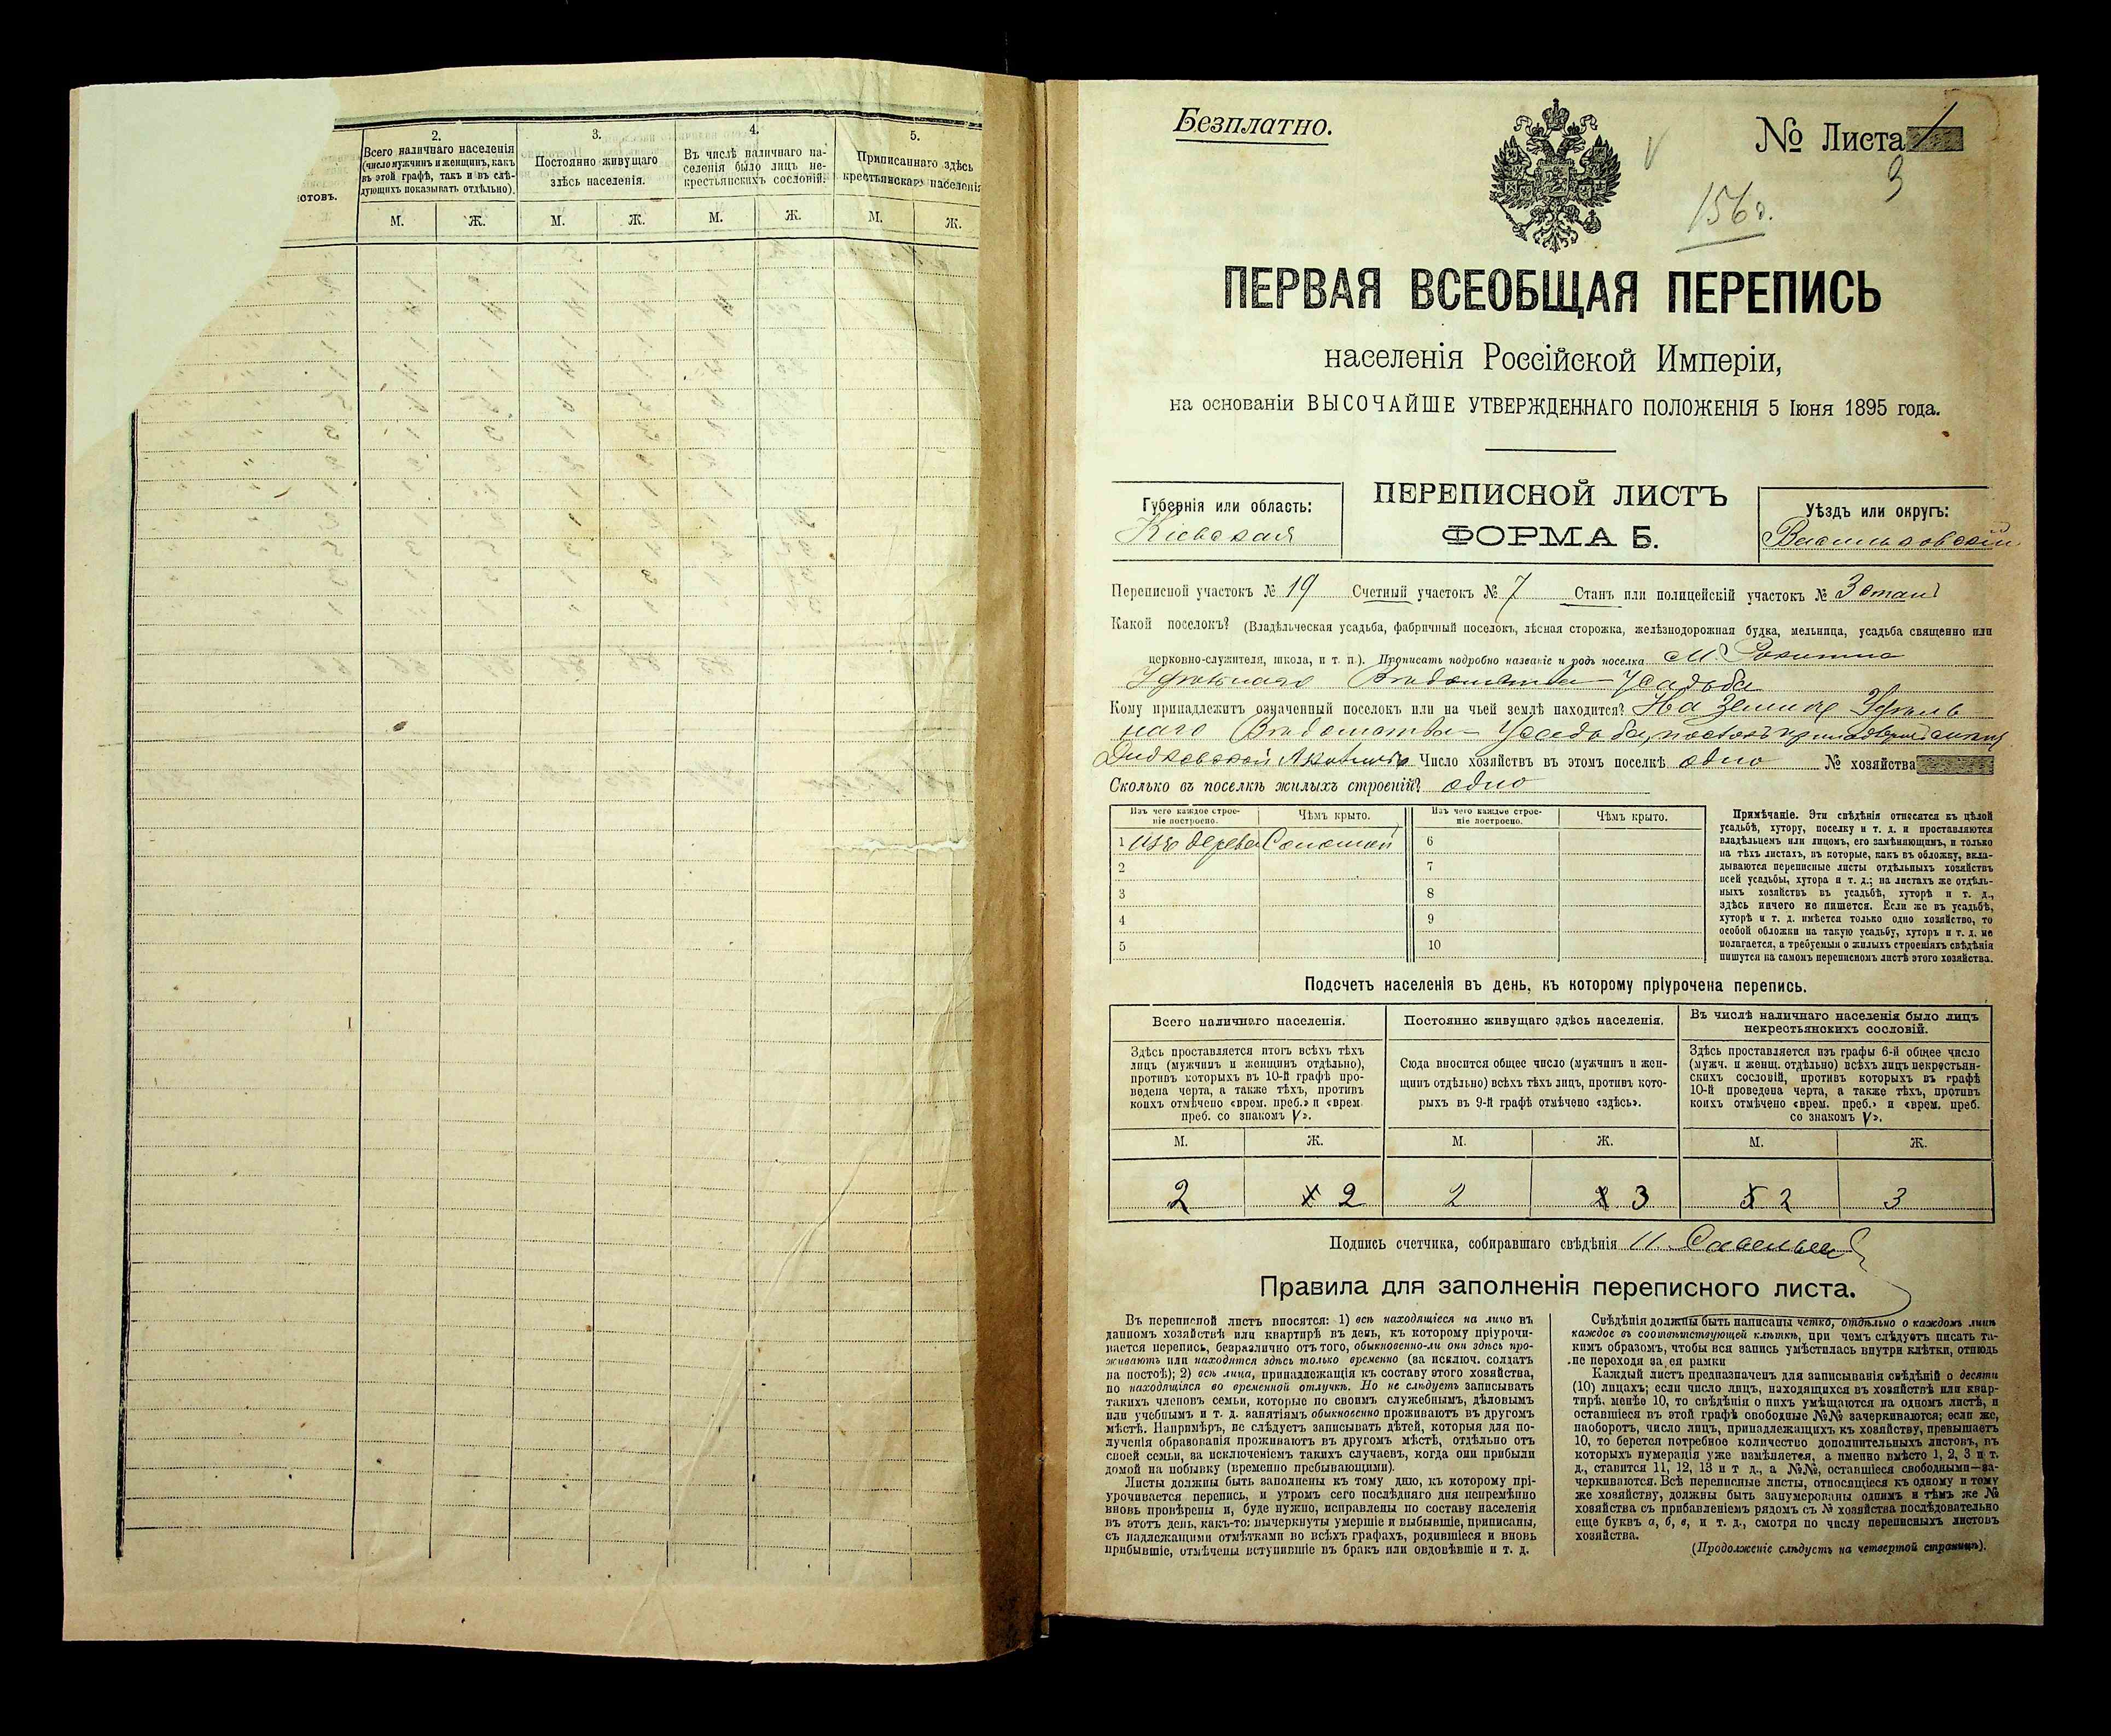 2.
Всего наличнаго населенія
(число мужчинъ и женщинъ, какъ
въ этой графѣ, такъ и въ слѣ-
дующихъ показывать отдѣльно).
3.
Постоянно живущаго
здѣсь населенія.
4.
Въ числѣ наличнаго на-
селенія было лицъ не-
крестьянскихъ сословій.
5.
Приписаннаго здѣсь
крестьянскаго населенія
истовъ.
М. Ж. М. Ж. М. Ж. М. Ж.
Безплатно.
№ Листа 1
3
156 о.
ПЕРВАЯ ВСЕОБЩАЯ ПЕРЕПИСЬ
населенія Россійской Имперіи,
на основаніи ВЫСОЧАЙШЕ УТВЕРЖДЕННАГО ПОЛОЖЕНІЯ 5 Іюня 1895 года.
Губернія или область:
Кіевская
ПЕРЕПИСНОЙ ЛИСТЪ
ФОРМА Б.
Уѣздъ или округъ:
Васильковскій
Переписной участокъ № 19 Счетный участокъ № 7 Станъ или полицейскій участокъ № 3 станъ
Какой поселокъ? (Владѣльческая усадьба, фабричный поселокъ, лѣсная сторожка, желѣзнодорожная будка, мельница, усадьба священно или
церковно-служителя, школа, и т. п.). Прописать подробно названіе и родъ поселка М. Рокитна
Удѣльнаго Вѣдомства – Усадьба
Кому принадлежитъ означенный поселокъ или на чьей землѣ находится? На землѣ Удѣль-
наго Вѣдомства – Усадьба,
Число хозяйствъ въ этомъ поселкѣ одно № хозяйства
Сколько въ поселкѣ жилыхъ строеній? одно
Изъ чего каждое строе-
ніе построено.
Чѣмъ крыто.
Изъ чего каждое строе-
ніе построено.
Чѣмъ крыто.
1 Изъ дерева Соломой 6
2 7
3 8
4 9
5 10
Примѣчаніе. Эти свѣдѣнія относятся къ цѣлой
усадьбѣ, хутору, поселку и т. д. и проставляются
владѣльцемъ или лицомъ, его замѣняющимъ, и только
на тѣхъ листахъ, въ которые, какъ въ обложку, вкла-
дываются переписные листы отдѣльныхъ хозяйствъ
всей усадьбы, хутора и т. д.; на листахъ же отдѣль-
ныхъ хозяйствъ въ усадьбѣ, хуторѣ и т. д.,
здѣсь ничего не пишется. Если же въ усадьбѣ,
хуторѣ и т. д. имѣется только одно хозяйство, то
особой обложки на такую усадьбу, хуторъ и т. д. не
полагается, а требуемыя о жилыхъ строеніяхъ свѣдѣнія
пишутся на самомъ переписномъ листѣ этого хозяйства.
Подсчетъ населенія въ день, къ которому пріурочена перепись.
Всего наличнаго населенія.
Здѣсь проставляется итогъ всѣхъ тѣхъ
лицъ (мужчинъ и женщинъ отдѣльно),
противъ которыхъ въ 10-й графѣ про-
ведена черта, а также тѣхъ, противъ
коихъ отмѣчено «врем. преб.» и «врем.
преб. со знакомъ V».
Постоянно живущаго здѣсь населенія.
Сюда вносится общее число (мужчинъ и жен-
щинъ отдѣльно) всѣхъ тѣхъ лицъ, противъ кото-
рыхъ въ 9-й графѣ отмѣчено «здѣсь».
Въ числѣ наличнаго населенія было лицъ
некрестьянскихъ сословій.
Здѣсь проставляется изъ графы 6-й общее число
(мужч. и женщ. отдѣльно) всѣхъ лицъ некрестьян-
скихъ сословій, противъ которыхъ въ графѣ
10-й проведена черта, а также тѣхъ, противъ
коихъ отмѣчено «врем. преб.» и «врем. преб.
со знакомъ V».
М. Ж. М. Ж. М. Ж.
2 2 2 3 2 3
Подпись счетчика, собиравшаго свѣдѣнія
Правила для заполненія переписного листа.
Въ переписной листъ вносятся: 1) всѣ находящіеся на лицо въ
данномъ хозяйствѣ или квартирѣ въ день, къ которому пріурочи-
вается перепись, безразлично отъ того, обыкновенно-ли они здѣсь про-
живаютъ или находятся здѣсь только временно (за исключ. солдатъ
на постоѣ); 2) всѣ лица, принадлежащія къ составу этого хозяйства,
но находящіяся во временной отлучкѣ. Но не слѣдуетъ записывать
такихъ членовъ семьи, которые по своимъ служебнымъ, дѣловымъ
или учебнымъ и т. д. занятіямъ обыкновенно проживаютъ въ другомъ
мѣстѣ. Напримѣръ, не слѣдуетъ записывать дѣтей, которыя для по-
лученія образованія проживаютъ въ другомъ мѣстѣ, отдѣльно отъ
своей семьи, за исключеніемъ такихъ случаевъ, когда они прибыли
домой на побывку (временно пребывающими).
Листы должны быть заполнены къ тому дню, къ которому прі-
урочивается перепись, и утромъ сего послѣдняго дня непремѣнно
вновь провѣрены и, буде нужно, исправлены по составу населенія
въ этотъ день, какъ-то: вычеркнуты умершіе и выбывшіе, приписаны,
съ надлежащими отмѣтками во всѣхъ графахъ, родившіеся и вновь
прибывшіе, отмѣчены вступившіе въ бракъ или овдовѣвшіе и т. д.
Свѣдѣнія должны быть написаны четко, отдѣльно о каждомъ лицѣ
каждое въ соотвѣтствующей клѣткѣ, при чемъ слѣдуетъ писать та-
кимъ образомъ, чтобы вся запись умѣстилась внутри клѣтки, отнюдь
не переходя за ея рамки
Каждый листъ предназначенъ для записыванія свѣдѣній о десяти
(10) лицахъ; если число лицъ, находящихся въ хозяйствѣ или квар-
тирѣ, менѣе 10, то свѣдѣнія о нихъ умѣщаются на одномъ листѣ, и
оставшіеся въ этой графѣ свободные №№ зачеркиваются; если же,
наоборотъ, число лицъ, принадлежащихъ къ хозяйству, превышаетъ
10, то берется потребное количество дополнительныхъ листовъ, въ
которыхъ нумерація уже измѣняется, а именно вмѣсто 1, 2, 3 и т.
д., ставится 11, 12, 13 и т д., а №№, оставшіеся свободными—за-
черкиваются. Всѣ переписные листы, относящіеся къ одному и тому
же хозяйству, должны быть занумерованы однимъ и тѣмъ же №
хозяйства съ прибавленіемъ рядомъ съ № хозяйства послѣдовательно
еще буквъ а, б, в, и т. д., смотря по числу переписныхъ листовъ
хозяйства.
(Продолженіе слѣдуетъ на четвертой страницѣ).